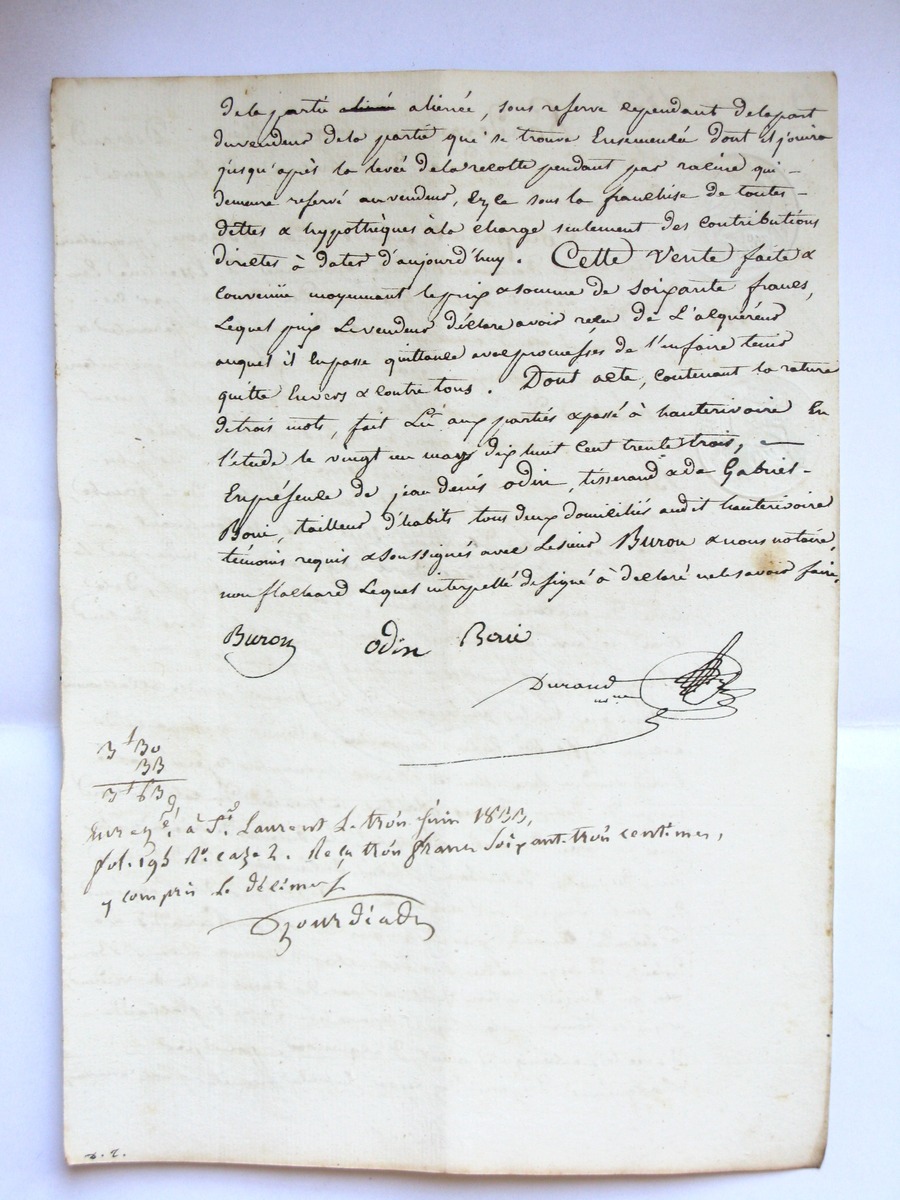 dela partie aliené alienée, sous reserve cependant delapart
du vendeur dela partie qui se trouve Ensemencée dont il jouira
jusqu'après la levée dela recolte pendant par racine qui -
demeure reservé au vendeur, sous la franchise de toutes -
dettes & hypothèques à la charge seulement des contributions
directes à dater d'aujourd'huy. Cette Vente faite &
convenüe moyennant le prix & somme de soixante francs,
Lequel prix Le vendeur déclare avoir reçu de L'acquéreur
auquel il En passe quittance avec promesses de l'enfaire tenir
quitte Envers & contre tous. Dont acte, contenant la rature
de trois mots, fait Lu aux parties & passé à hauterivoire En
l'étude le vingt un may dix huit cent trente trois, —
En présence de jean denis odin, tisserand & de Gabriel -
Borie, tailleur d'habits tous deux domiciliés audit hauterivoire
témoins requis & soussignés avec Le sieur Buron & nous notaire,
non flachard Lequel interpellé de signé à declaré ne le savoir faire.
Buron odin Borie
Durand
3f 30
33
3f 63
Enregé. à St. Laurent Le trois juin 1833,
fol. 195 Ro. case 2. Reçu trois francs soixante-trois centimes,
y compris le décime